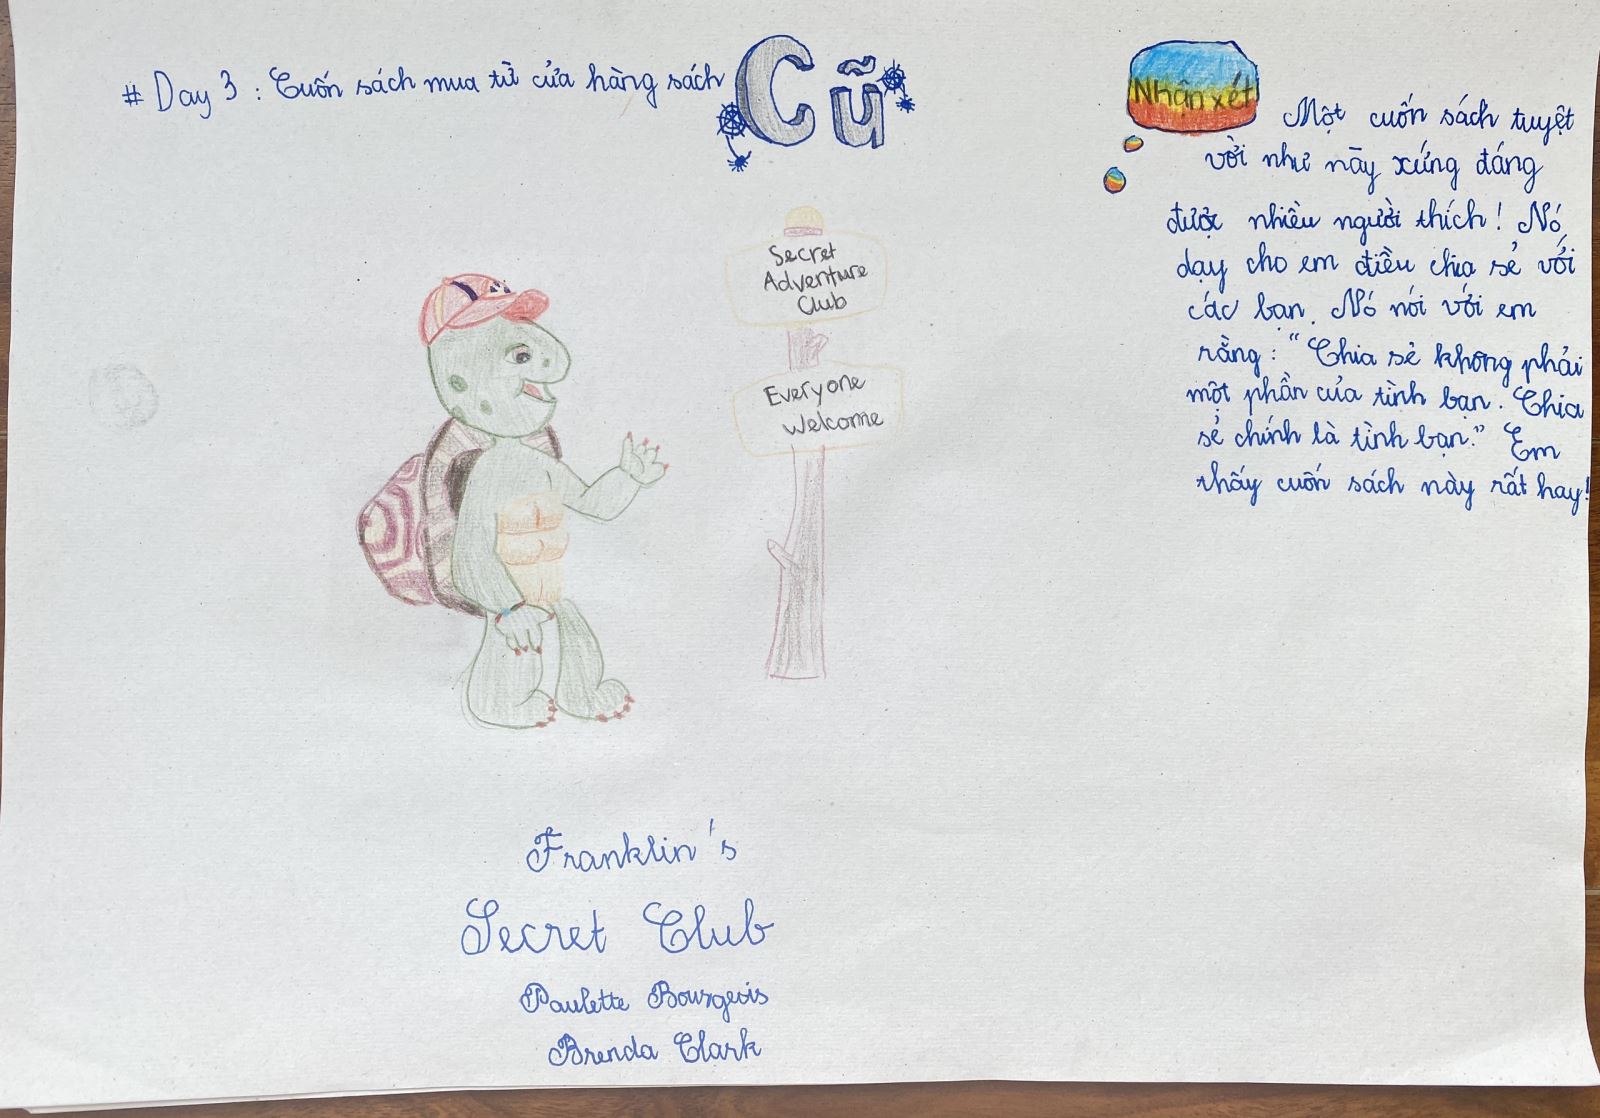 # Day 3 : Cuốn sách mua từ cửa hàng sách Cũ
Nhận xét
Một cuốn sách tuyệt
vời như này xứng đáng
được nhiều người thích! Nó
dạy cho em điều chia sẻ với
các bạn. Nó nói với em
rằng: "Chia sẻ không phải
một phần của tình bạn. Chia
sẻ chính là tình bạn." Em
thấy cuốn sách này rất hay!
Secret
Adventure
Club
Everyone
Welcome
Franklin's
Secret Club
Paulette Bourgeois
Brenda Clark